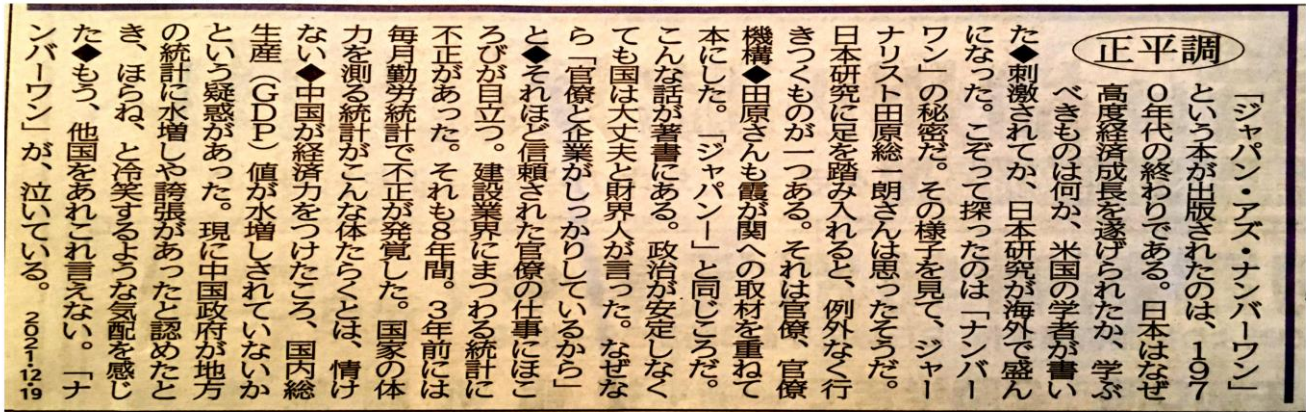 正平調
「ジャパン・アズ・ナンバーワン」
という本が出版されたのは、197
0年代の終わりである。日本はなぜ
高度経済成長を遂げられたか、学ぶ
べきものは何か、米国の学者が書い
た◆刺激されてか、日本研究が海外で盛ん
になった。こぞって探ったのは「ナンバー
ワン」の秘密だ。その様子を見て、ジャー
ナリスト田原総一朗さんは思ったそうだ。
日本研究に足を踏み入れると、例外なく行
きつくものが一つある。それは官僚、官僚
機構◆田原さんも霞が関への取材を重ねて
本にした。「ジャパン―」と同じころだ。
こんな話が著書にある。政治が安定しなく
ても国は大丈夫と財界人が言った。なぜな
ら「官僚と企業がしっかりしているから」
と◆それほど信頼された官僚の仕事にほこ
ろびが目立つ。建設業界にまつわる統計に
不正があった。それも8年間。3年前には
毎月勤労統計で不正が発覚した。国家の体
力を測る統計がこんな体たらくとは、情け
ない◆中国が経済力をつけたころ、国内総
生産(GDP)値が水増しされていないか
という疑惑があった。現に中国政府が地方
の統計に水増しや誇張があったと認めたと
き、ほらね、と冷笑するような気配を感じ
た◆もう、他国をあれこれ言えない。「ナ
ンバーワン」が、泣いている。
2021・12・19